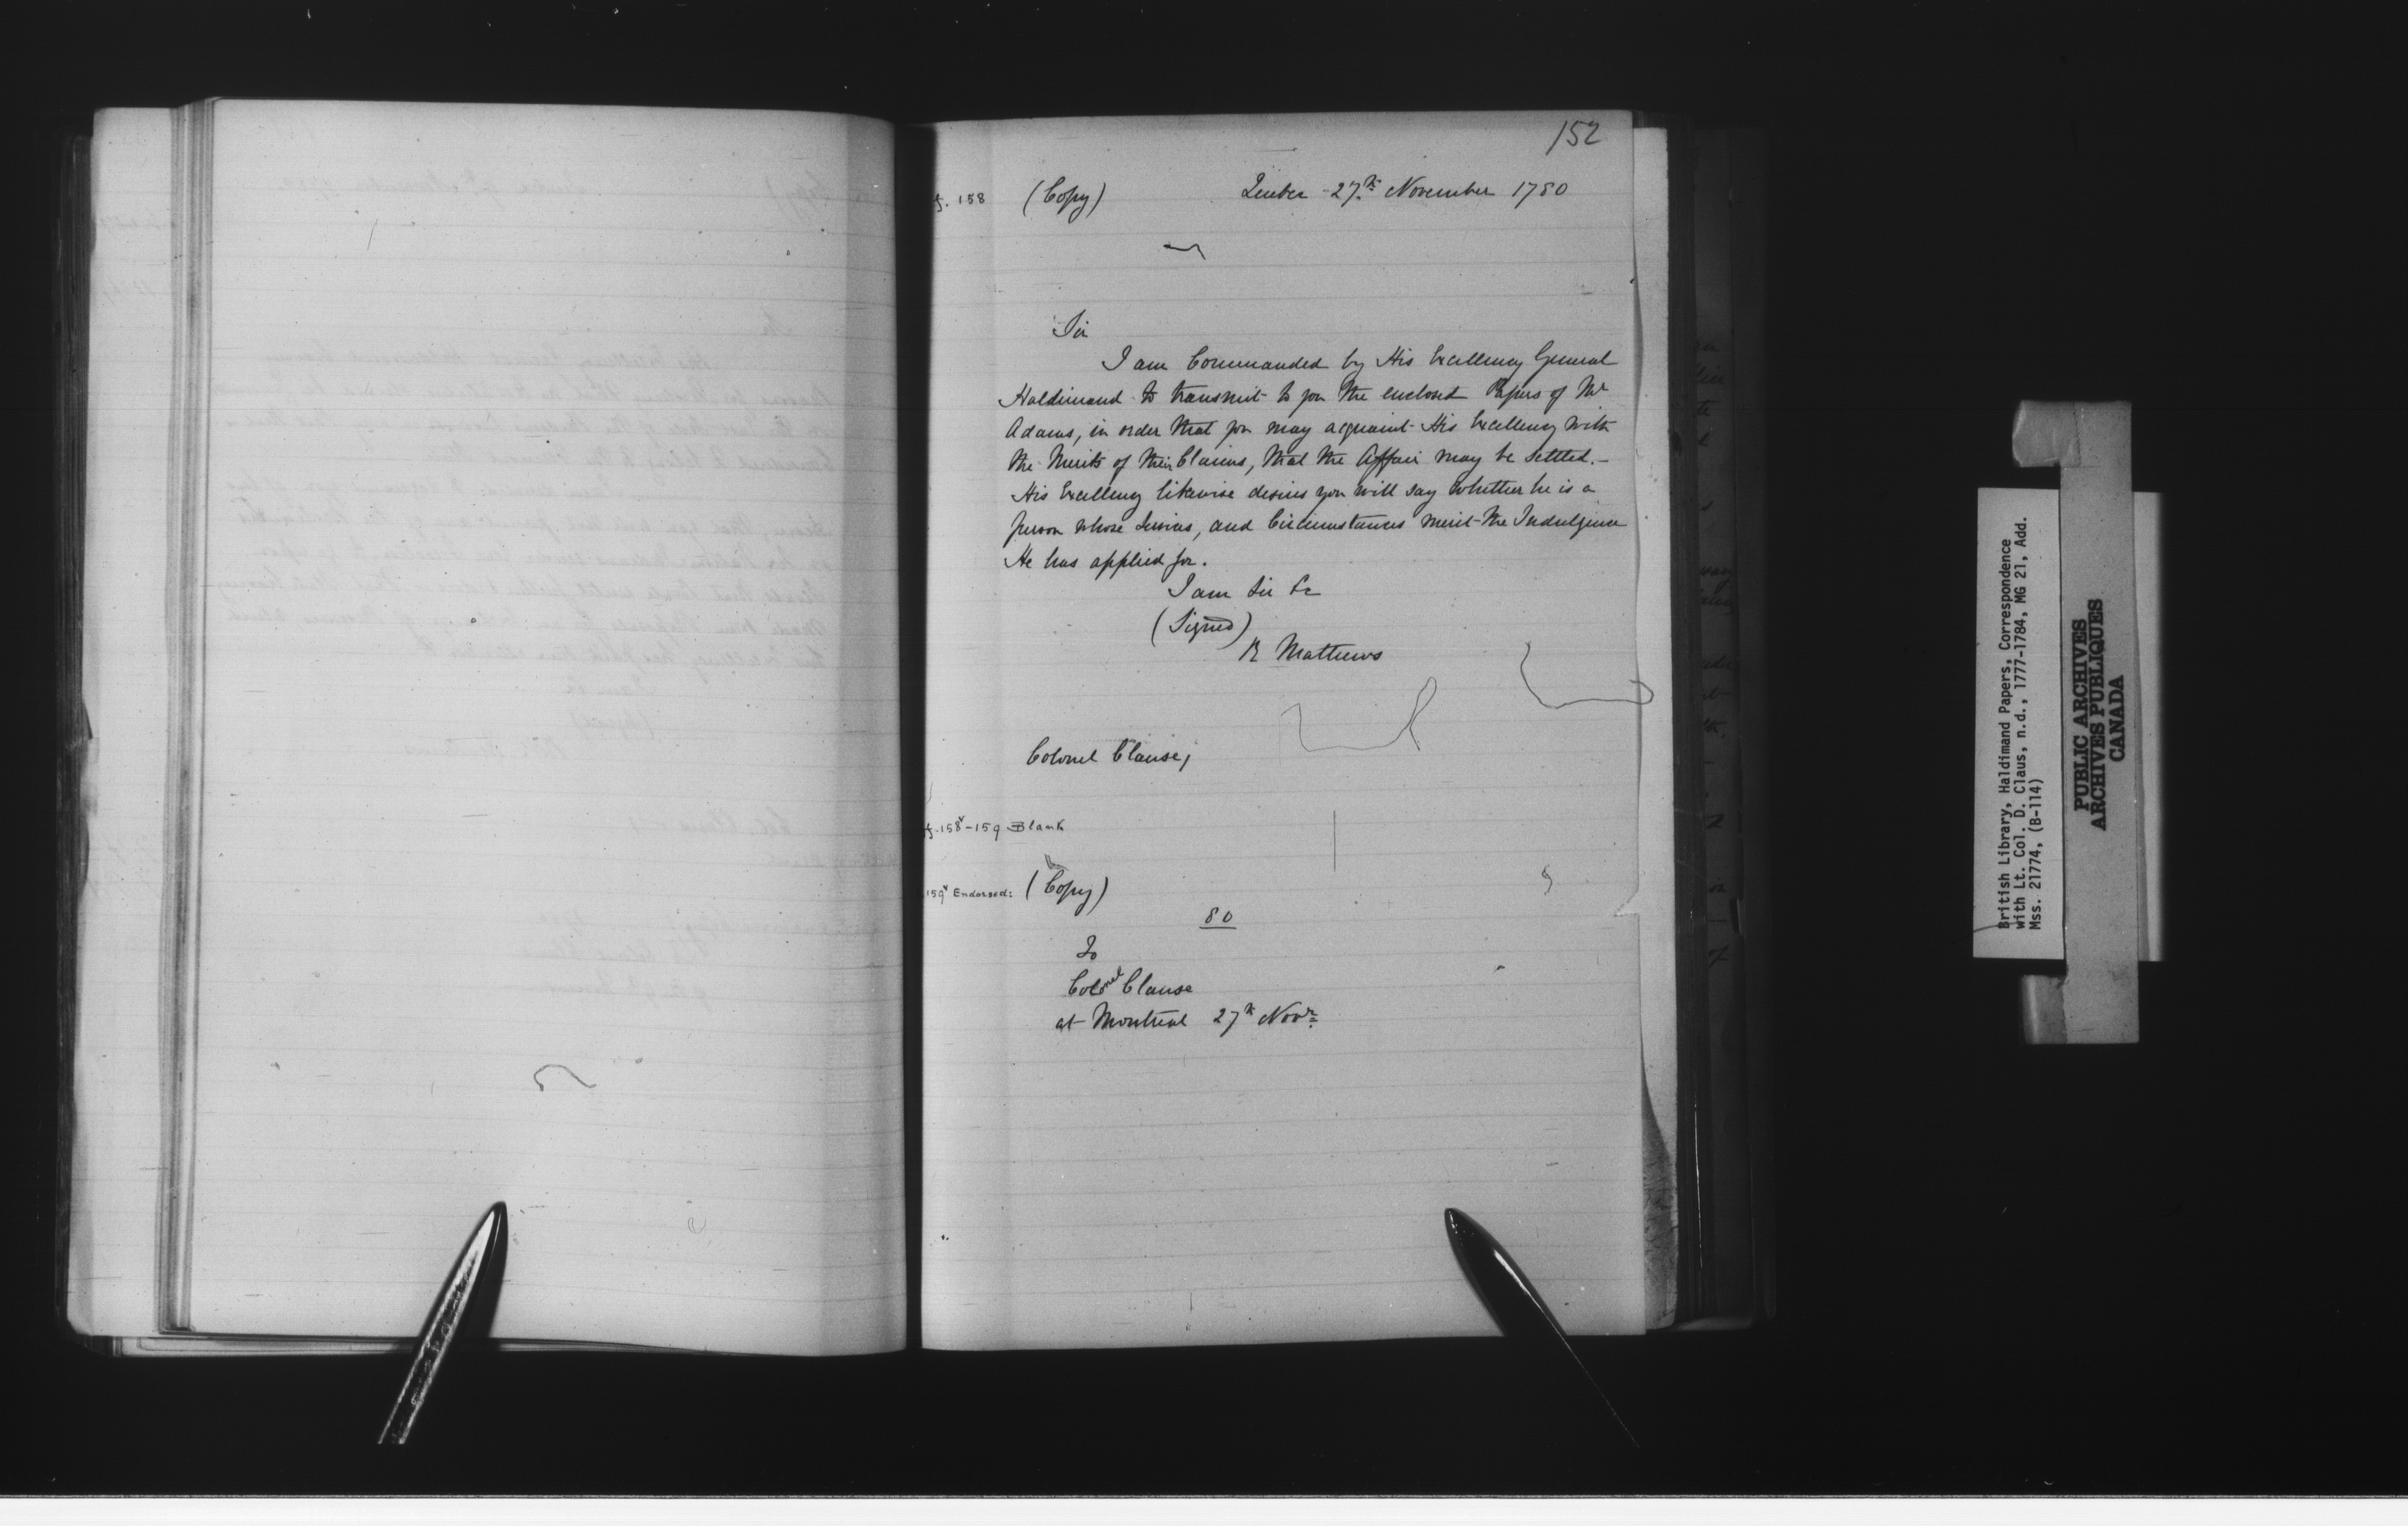 152
f. 158 (Copy) Quebec 27th November 1780
Sir
I am Commanded by His Excellency General
Haldimand to transmit to you the enclosed Papers of Mr
Adams, in order that you may acquaint His Excellency with
the Merits of their Claims, that the Affair may be settled.-
His Excellency likewise desires you will say whether he is a
person whose Services, and Circumstances merit the Indulgence
He has applied for.
I am Sir &c
(Signed)
R Mathews
Colonel Clause,
f. 158v-159 Blank
159v Endorsed: (Copy)
80
To
Colonel Clause
at Montreal 27th Novr.
British Library, Haldimand Papers, Correspondence
with Lt. Col. D. Claus, n.d., 1777-1784, MG 21, Add.
Mss. 21774, (B-114)
PUBLIC ARCHIVES
ARCHIVES PUBLIQUES
CANADA